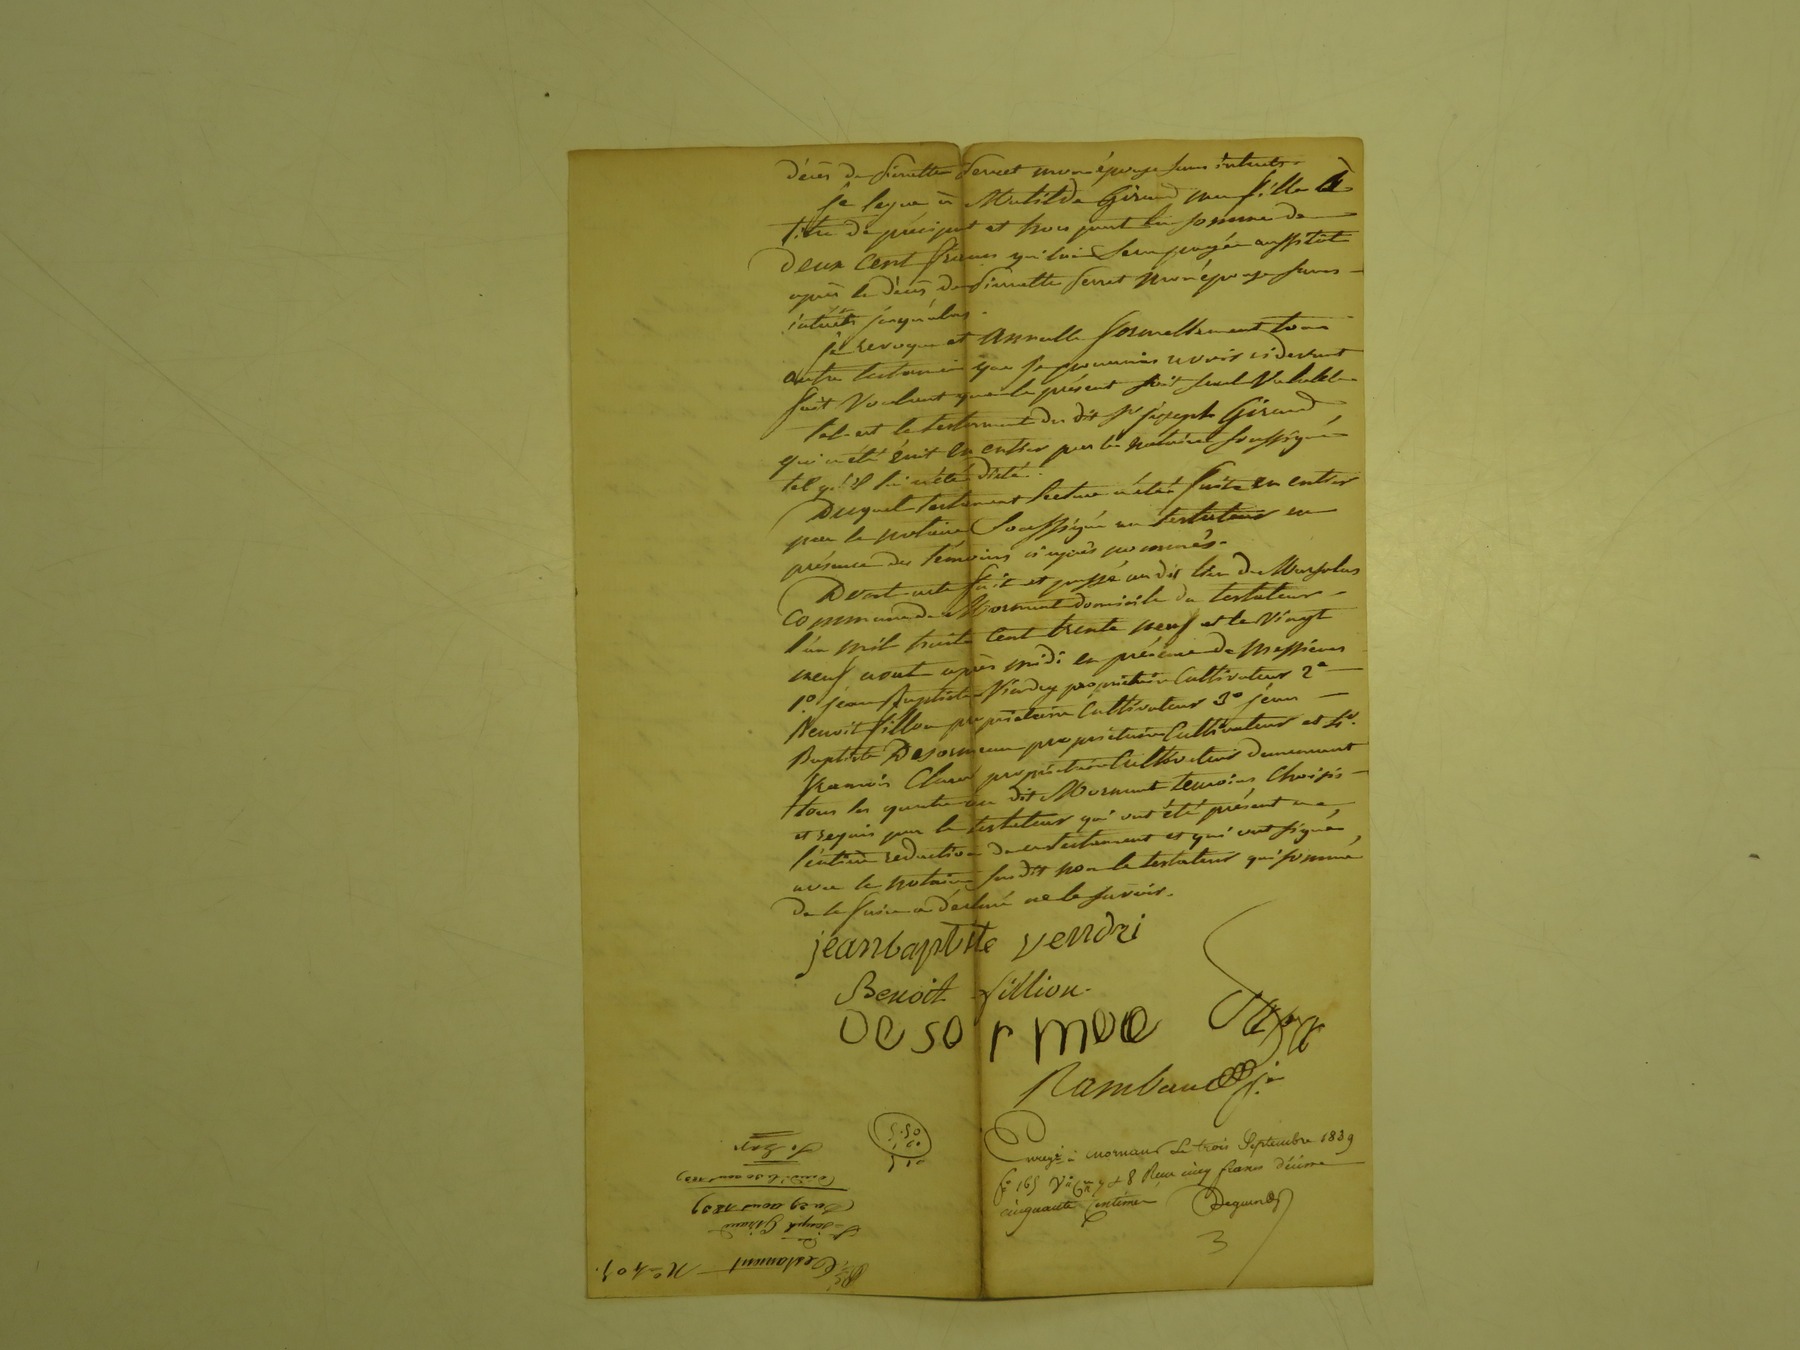 décès de Pierrette Serret mon épouse sans intérêts.
Je legue à Matilde Giraud ma fille à
titre de préciput et hors part la somme de
deux cent francs qui lui sera payée aussitôt
après le décès de Pierrette Serret mon épouse sans
intérêts jusqu'alors.
Je revoque et annulle formellement tous
autre testament que je pourrais avoir cidevant
fait voulant que le présent soit seul valable
tel est le testament du dit Sr joseph Giraud
qui a été écrit en entier par le notaire soussigné
tel qu'il lui a été dicté.
Duquel testament lecture a été faite en entier
par le notaire soussigné au testateur en
présence des témoins ci après nommés.
Dont acte fait et passé au dit lieu de
commune de Mornant domicile du testateur
l'an mil huit cent trente neuf et le vingt
neuf aout après midi en présence de Messieurs
1o jean Baptiste propriétaire cultivateur 2o
Benoit fillon propriétaire cultivateur 3o jean
Baptiste Desormeau propriétaire cultivateur et 4o
françois propriétaire cultivateur demeurant
tous les quatre au dit Mornant temoins choisis
et requis par le testateur qui ont été présent a
l'entière redaction de ce testament et qui ont signé
avec le notaire susdit non le testateur qui sommé
de le faire a déclaré ne le savoir.
jeanbaptiste vendri
Benoit fillion
desormoo
Rambaud
Enregé à Mornant le trois Septembre 1839
fo 165 Vo Cases 7 et 8 Reçu cinq francs décime
cinquante Centimes
3
Testament No 405.
Sr joseph Giraud
Du 29 aout 1839